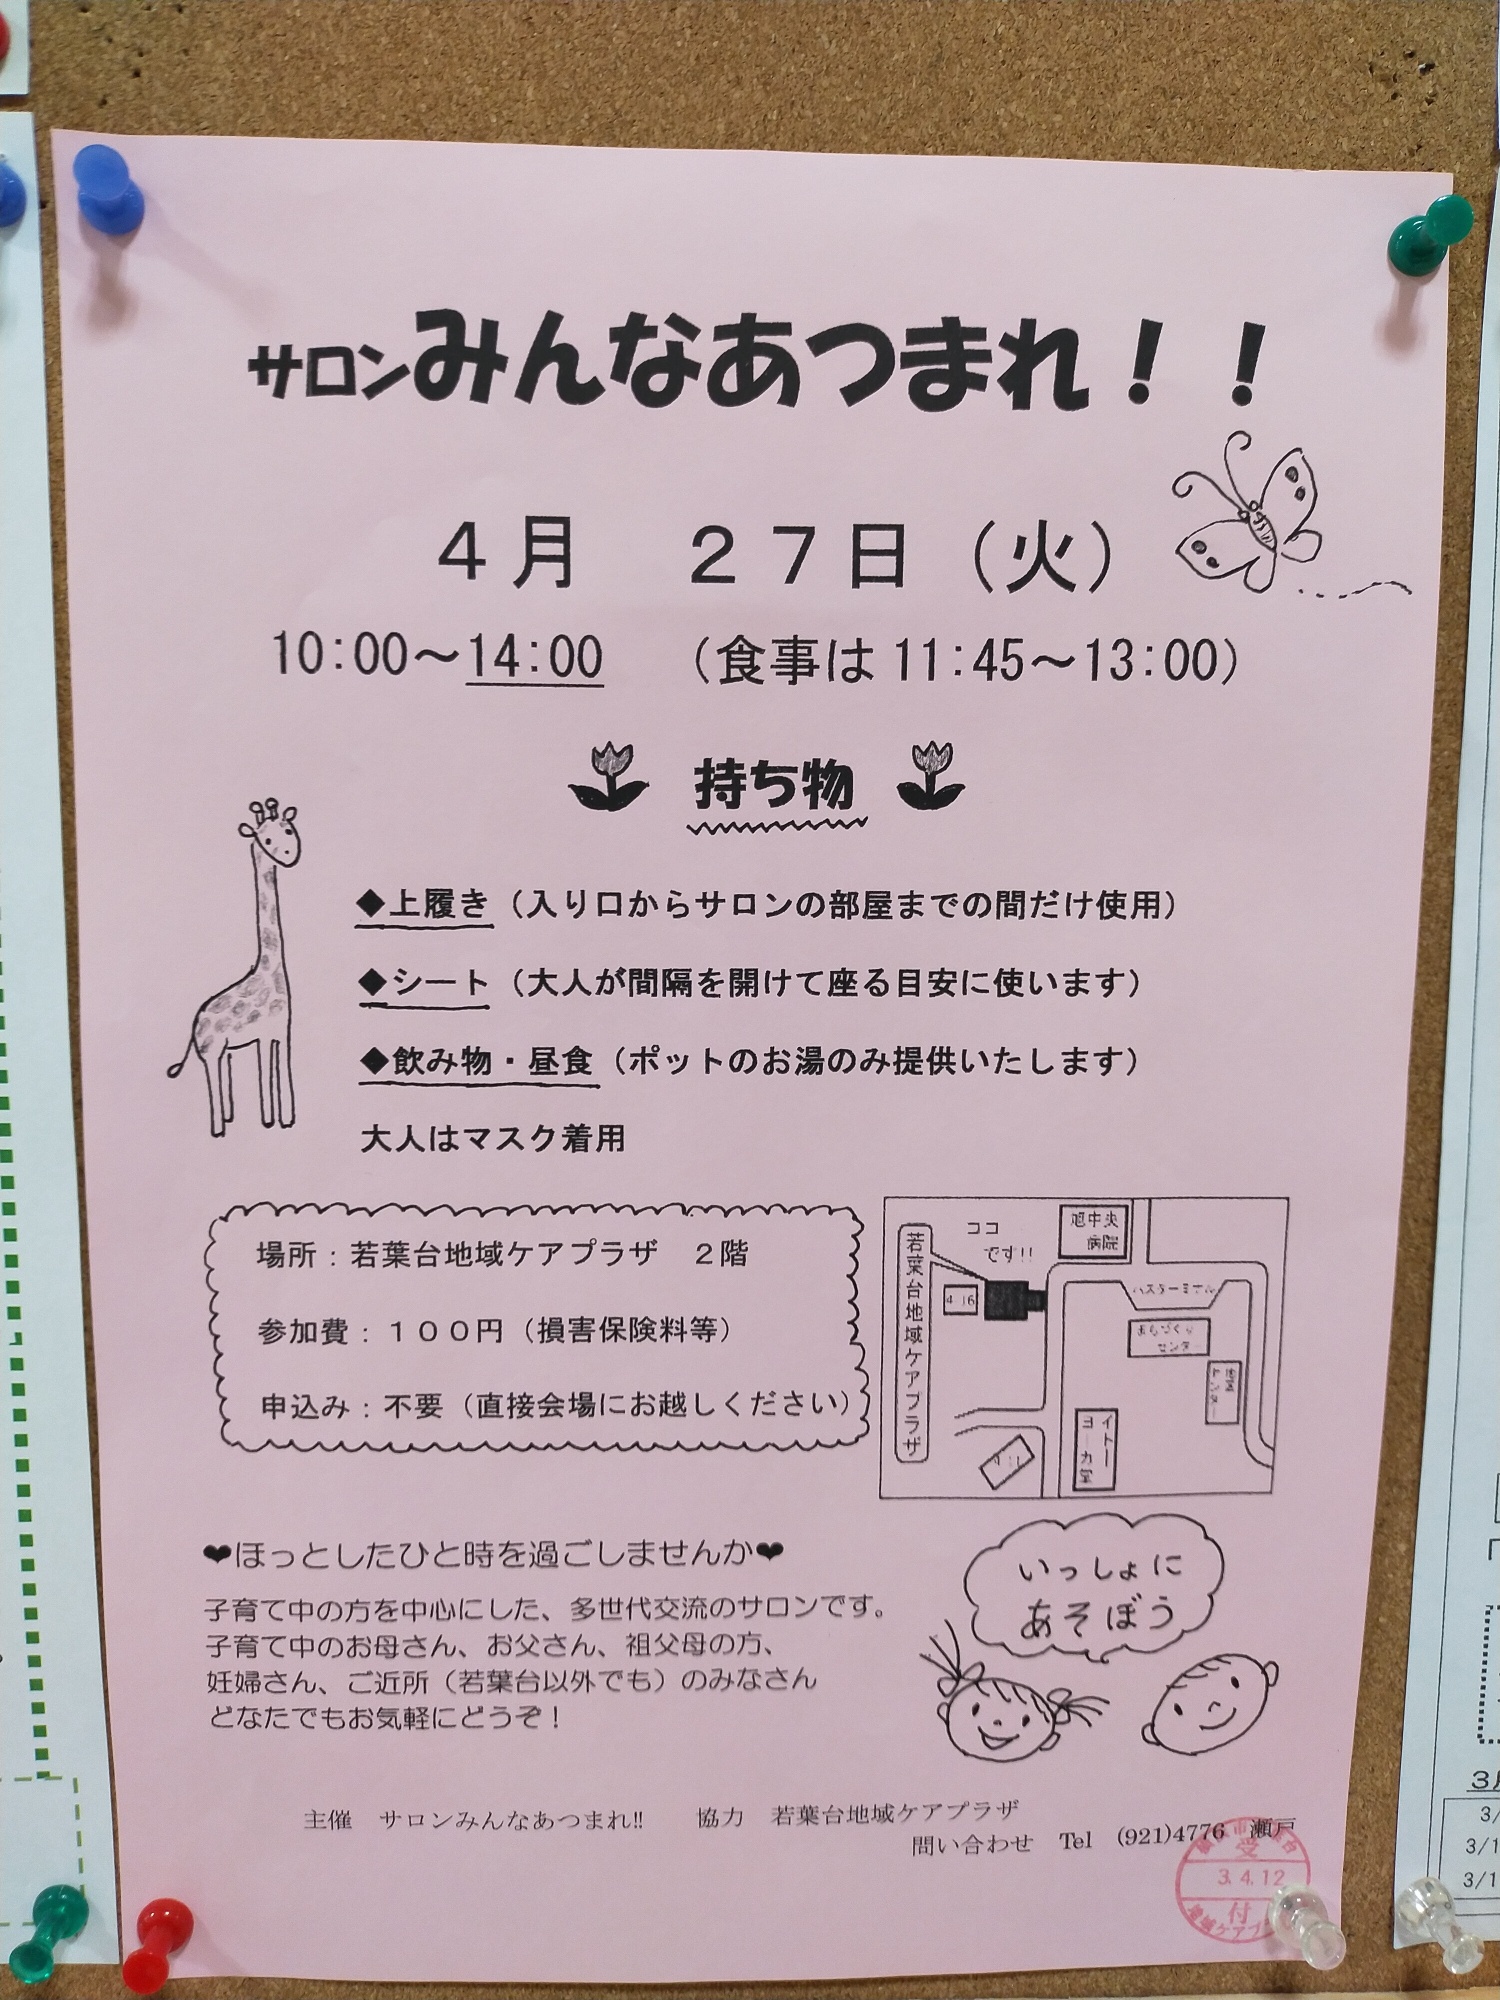 サロンみんなあつまれ！！
４月　２７日（火）
10:00～14:00　（食事は 11:45～13:00）
持ち物
◆上履き（入り口からサロンの部屋までの間だけ使用）
◆シート（大人が間隔を開けて座る目安に使います）
◆飲み物・昼食（ポットのお湯のみ提供いたします）
大人はマスク着用
場所：若葉台地域ケアプラザ　２階
参加費：１００円（損害保険料等）
申込み：不要（直接会場にお越しください）
若葉台地域ケアプラザ
ココ
です!!
旭中央
病院
バスターミナル
まちづくり
センター
イトー
ヨーカ堂
❤ほっとしたひと時を過ごしませんか❤
子育て中の方を中心にした、多世代交流のサロンです。
子育て中のお母さん、お父さん、祖父母の方、
妊婦さん、ご近所（若葉台以外でも）のみなさん
どなたでもお気軽にどうぞ！
いっしょに
あそぼう
主催　サロンみんなあつまれ!!　協力　若葉台地域ケアプラザ
問い合わせ　Tel　(921)4776　瀬戸
受
3.4.12
付
3/1
3/1